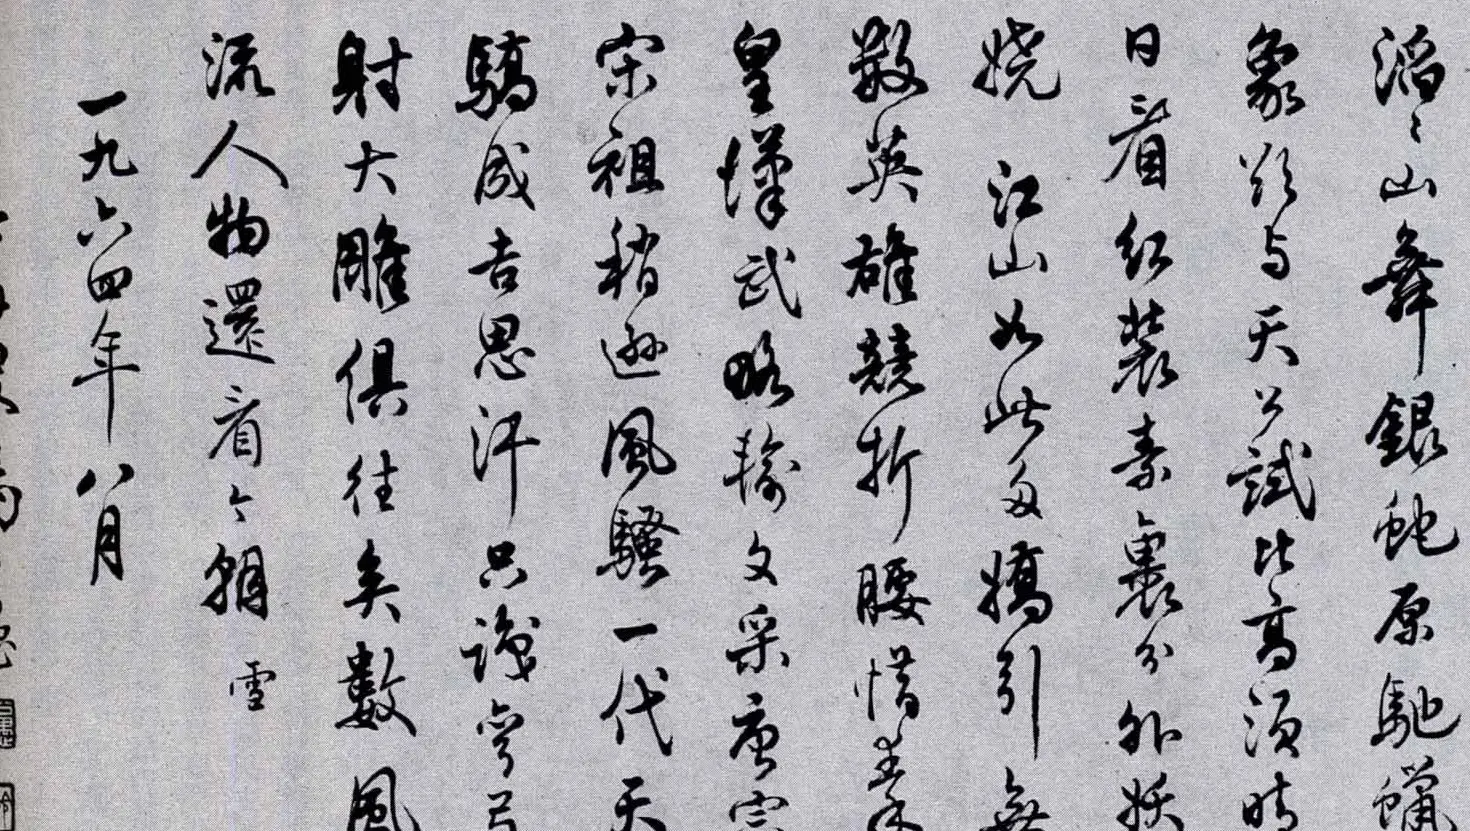 滔〻山舞銀蛇原馳蠟
象欲与天公試比高須晴
日看红装素裹分外妖
娆 江山如此多嬌引無
数英雄競折腰惜秦
皇漢武略輸文采唐宗
宋祖稍遜風騷一代天
驕成吉思汗只識弯弓
射大雕俱往矣數風
流人物還看今朝 雪
一九六四年八月